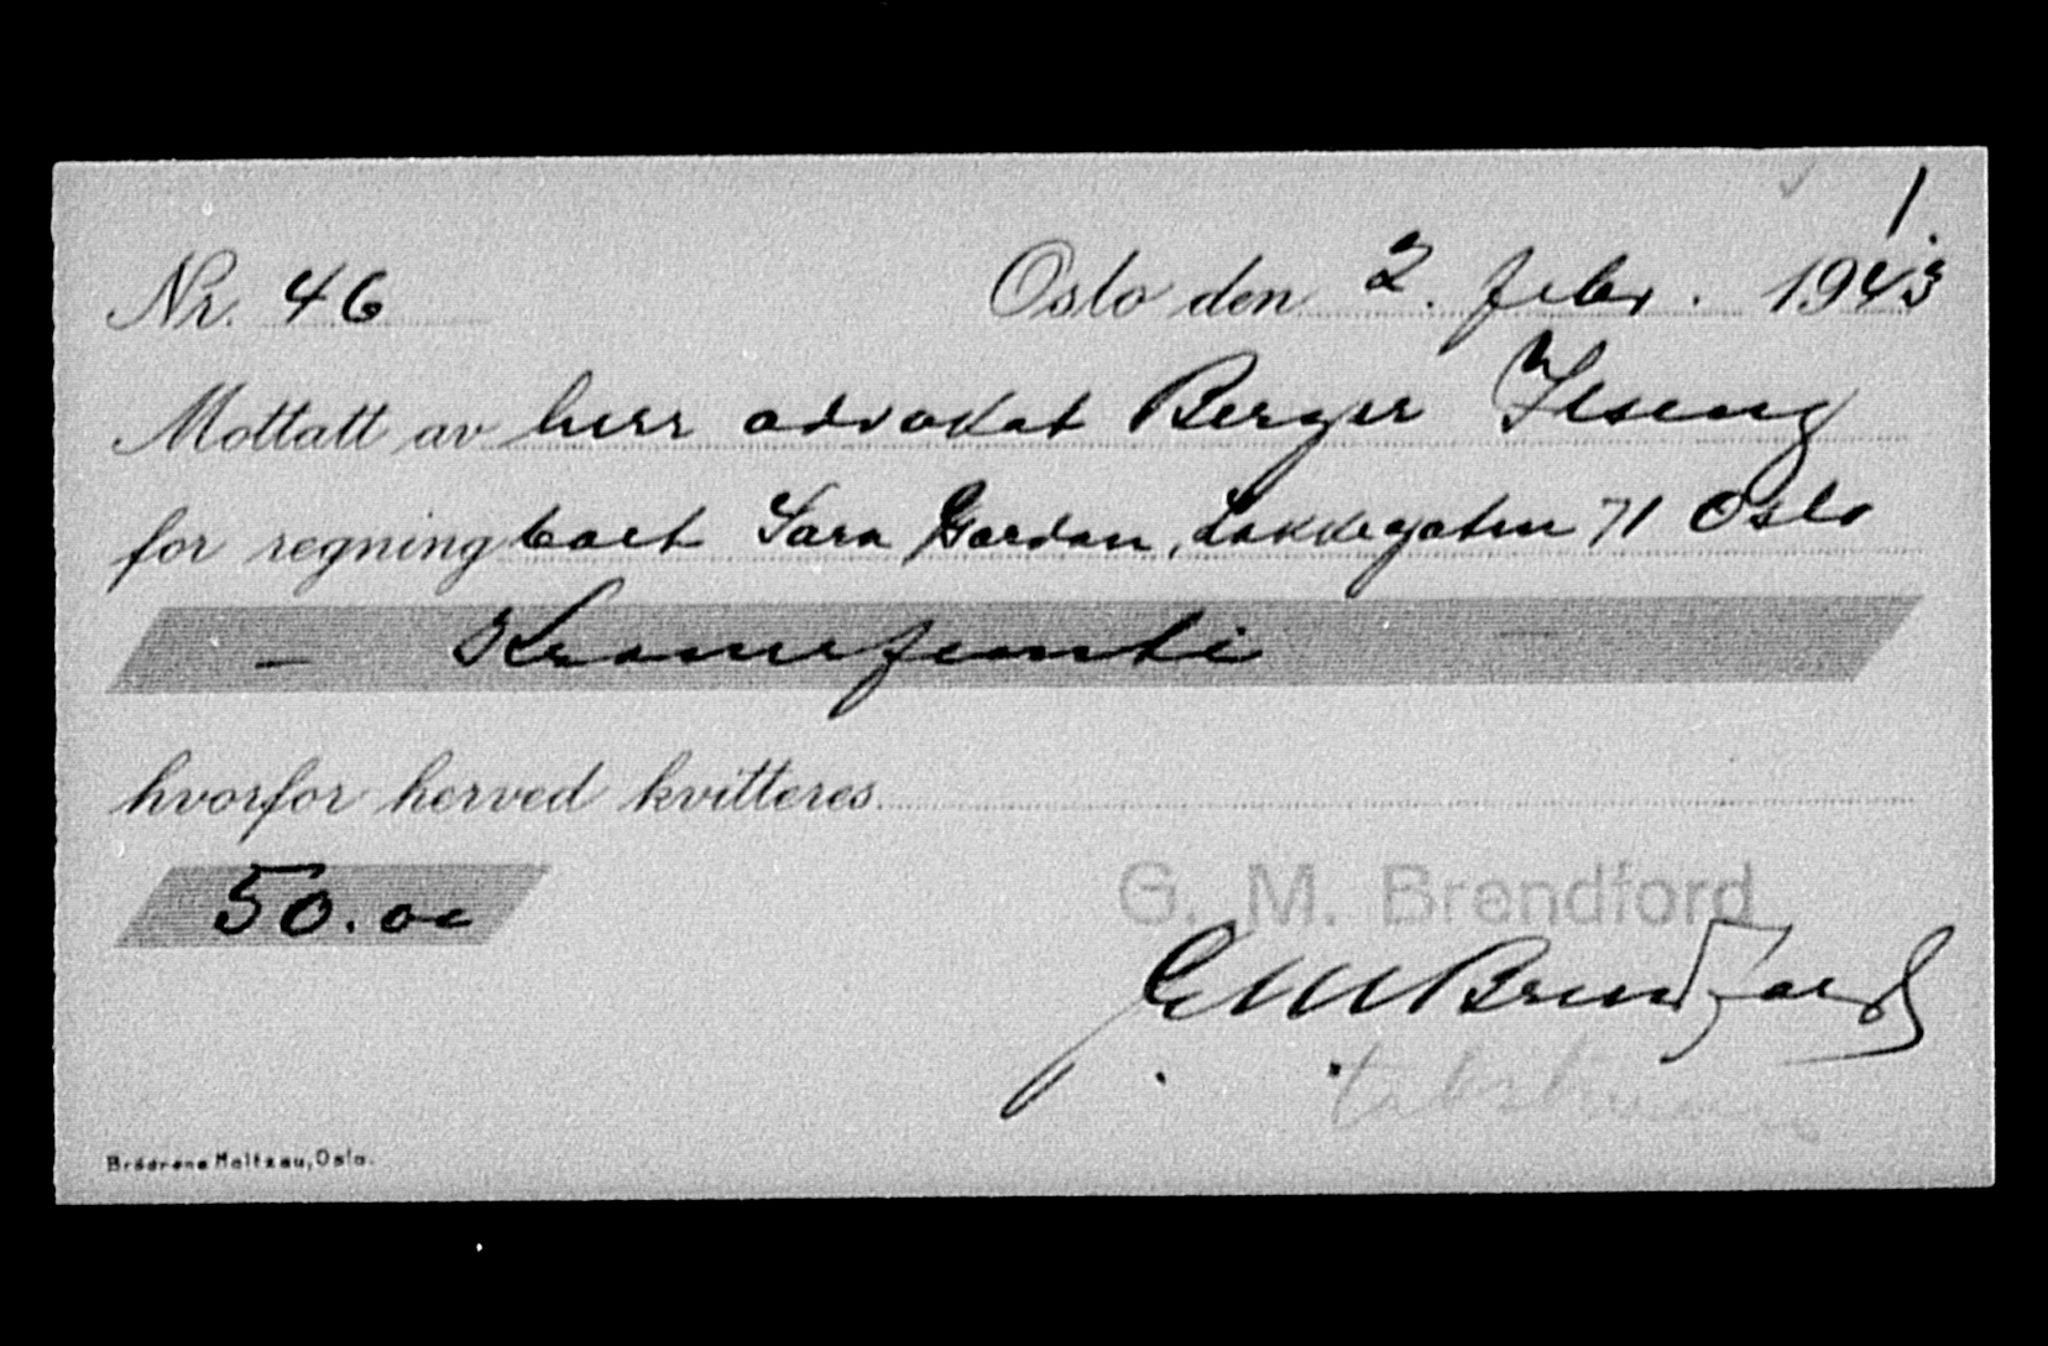 1
Nr. 46 Oslo den 2. febr. 1943
Mottatt av herr advokat Berger Ilseng
for regning boet Sara Gordon, Lakkegaten 71 Oslo
– Kronerfemti –
hvorfor herved kvitteres
50.00
G. M. Brendford
G M Brendford
Brödrene Maltzau, Oslo.